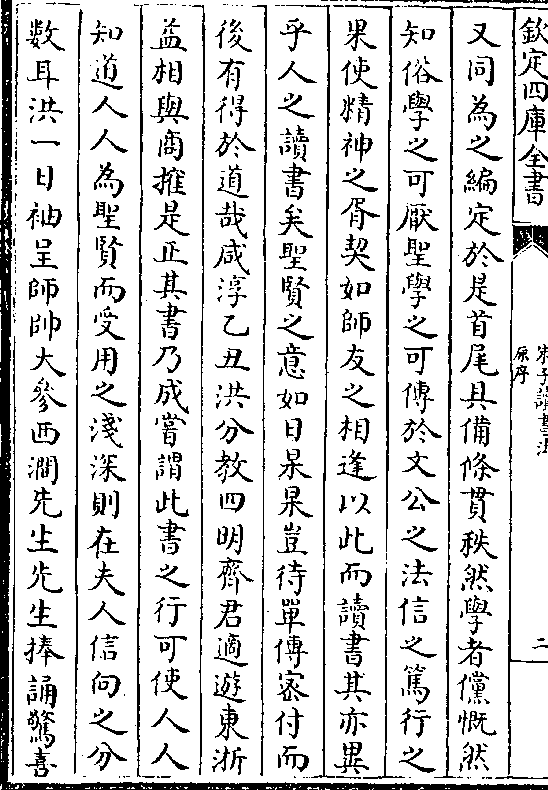 欽定四庫全書
朱子讀書法
原序
二
又同為之編定於是首尾具備條貫秩然學者儻慨然
知俗學之可厭聖學之可傳於文公之法信之篤行之
果使精神之胥契如師友之相逢以此而讀書其亦異
乎人之讀書矣聖賢之意如日杲杲豈待單傳密付而
後有得於道哉咸淳乙丑洪分教四明齊君適遊東浙
益相與商搉是正其書乃成嘗謂此書之行可使人人
知道人人為聖賢而受用之淺深則在夫人信向之分
數耳洪一日袖呈師帥大參西澗先生先生捧誦驚喜